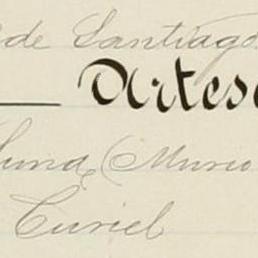 de Santiago
Artes
Luna, (Murcia
Curiel